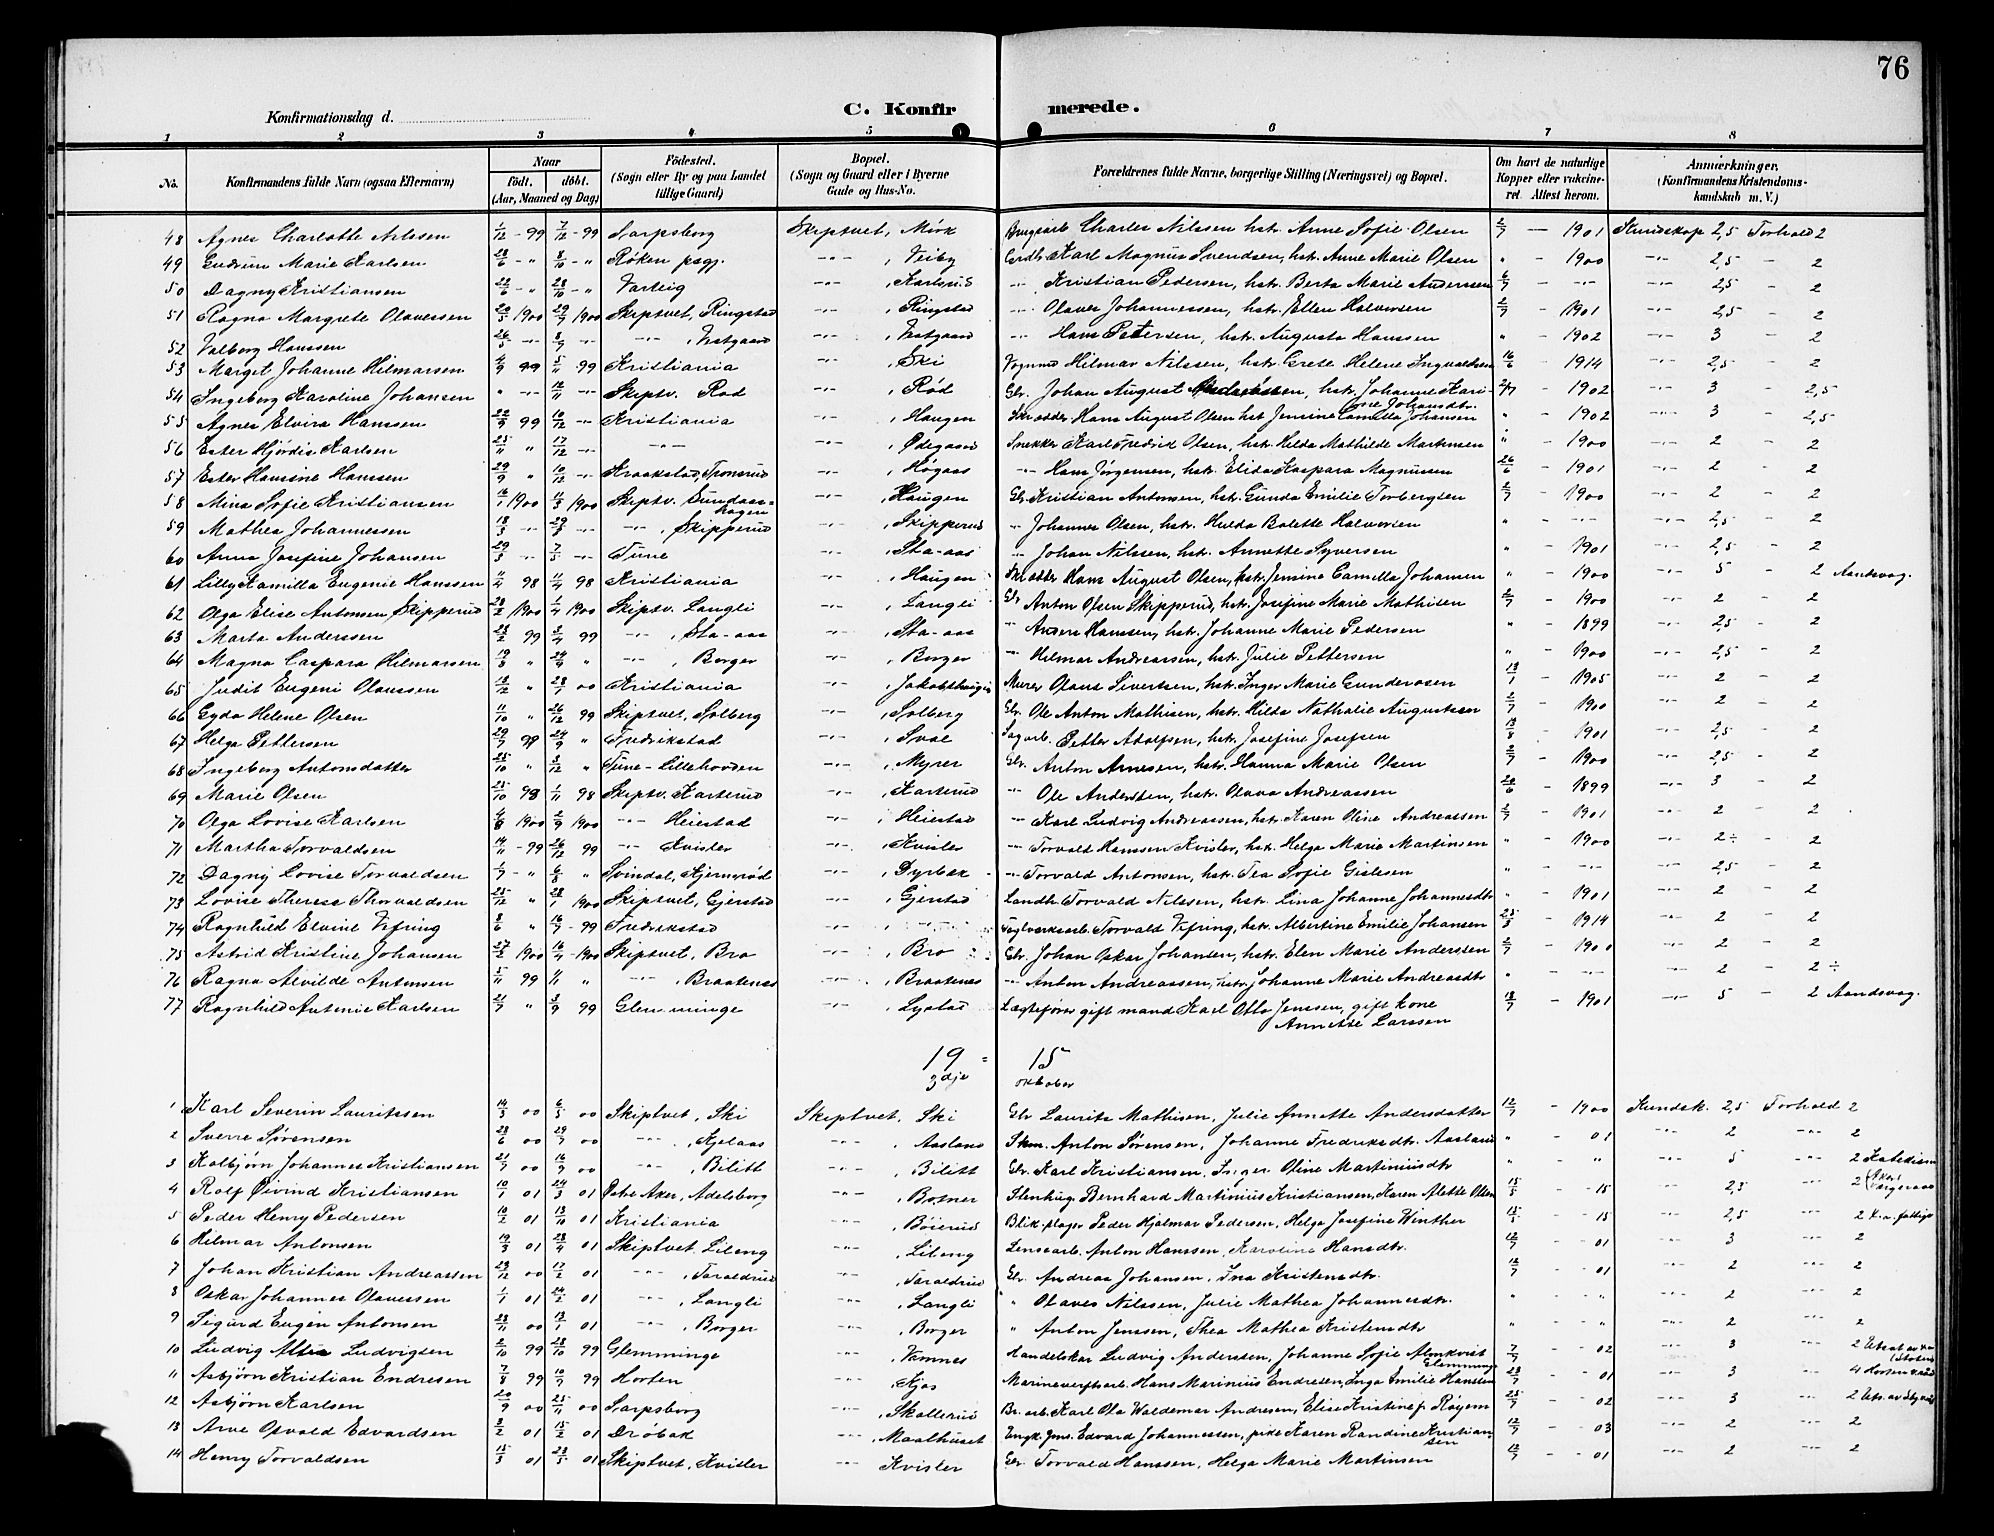 76
C. Konfirmerede.
Konfirmationsdag d.
1 2 3 4 5 6 7 8
No. Konfirmandens fulde Navn (ogsaa Efternavn) Naar Födt. döbt. (Aar, Maaned og Dag) Födested. (Sogn eller By og paa Landet tillige Gaard) Bopæl. (Sogn og Gaard eller i Byerne Gade og Hus-No. Forældrenes fulde Navne, borgerlige Stilling (Næringsvei) og Bopæl. Om havt de naturlige Kopper eller vakcineret. Attest herom. Anmærkninger. (Konfirmandens Kristendomskundskab m. V.)
48 Agnes Charlotte Nilssen 1/12 - 99 7/12 - 99 Sarpsborg Skiptvet, Mörk Charles Nilssen hstr. Anne Sofie Olsen 2/7 — 1901 Kundskap 2,5 Forhold 2
49 Gudrun Marie Karlsen 28/6 - " 8/10 - " Röken psgj. -"- , Veiby Karl Magnus Svendsen, hstr. Anne Marie Olsen " - 1900 -"- 2,5 - 2
50 Dagny Kristiansen 22/6 - " 28/10 - " Varteig -"- , Karlsrud -"- Kristian Pedersen, hstr. Berta Marie Andersen 6/7 - -"- -"- 2,5 - 2
51 Ragna Margrete Olavessen 20/5 1900 29/7 1900 Skiptvet, Ringstad -"- , Ringstad -"- Olaves Johannessen, hstr. Ellen Halvorsen 2/7 - 1901 -"- 2,5 - 2
52 Valborg Hanssen 26/5 -"- 8/7 -"- -"- , Vestgaard -"- , Vestgaard -"- Hans Petersen, hstr. Augusta Hanssen " - 1902 -"- 3 - 2
53 Marget Johanne Hilmarsen 4/9 99 5/11 99 Kristiania -"- , Ski Vognmd Hilmar Nilssen, hstr. Grete Helene Ingvaldsen 16/6 - 1914 -"- 2,5 - 2
54 Ingeborg Karoline Johansen " -"- 12/11 -"- Skiptv. Rød -"- , Rød Gbr. Johan August hstr. Johanne Karine Johansdtr. 2/7 - 1902 -"- 3 - 2,5
55 Agnes Elvira Hanssen 22/9 99 10/12 -"- Kristiania -"- , Haugen Skrædder Hans August Olsen hst. Jensine Camilla Johansen " - 1902 -"- 3 - 2,5
56 Ester Hjördis Karlsen 25/11 " 17/12 -"- -"- -"- , Ødegaard Snekker Karl Fredrik Olsen, hstr. Helda Mathilde Martinsen " - 1900 -"- 2 - 2
57 Ester Hansine Hanssen 29/9 " 10/12 -"- Kraakstad, Tronsrud -"- , Høgaas -"- Hans Jørgensen, hstr. Elida Kaspara Magnussen 26/6 - 1901 -"- 2 - 2
58 Mina Sofie Kristiansen 16/1 1900 11/3 1900 Skiptv. Sundaashagen -"- , Haugen Gbr. Kristian Antonsen, hstr. Gunda Emilie Torbergsen 2/7 - 1900 -"- 2 - 2
59 Mathea Johannessen 18/3 -"- 29/8 -"- -"- , Skipperud -"- , Skipperud -"- Johannes Olsen, hstr. Hulda Bolette Halvorsen " - -"- -"- 2,5 - 2
60 Anna Josefine Johansen 29/3 -"- 7/5 -"- Tune -"- , Sta-aas -"- Johan Nilssen, hstr. Annette Syversen " - 1901 -"- 2,5 - 2
61 Lilly Kamilla Eugenie Hanssen 11/4 98 11/4 98 Kristiania -"- , Haugen Skrædder Hans August Olsen, hstr. Jensine Camilla Johansen " - 1900 -"- 5 - 2 Aandsvag.
62 Olga Elise Antonsen Skipperud 28/2 1900 1/4 1900 Skiptv. Langli -"- , Langli Gbr Anton Olsen Skipperud, hstr. Josefine Marie Mathisen 2/7 - 1900 -"- 2 - 2
63 Marta Anderssen 23/2 99 2/4 99 -"- , Sta-aas -"- , Sta-aas -"- Anders Hanssen, hstr. Johanne Marie Pedersen " - 1899 -"- 2,5 - 2
64 Magna Caspara Hilmarsen 19/8 " 24/9 " -"- , Borger -"- , Borger -"- Hilmar Andreassen, hstr. Julie Pettersen " - 1900 -"- 2,5 - 2
65 Judit Eugeni Olaussen 18/12 " 28/1 00 Kristiania -"- , Jakobshaugen Murer Olaus Sivertsen, hstr. Inger Marie Gunderssen 13/1 - 1905 -"- 2 - 2
66 Gyda Helene Olsen 11/10 " 26/12 99 Skiptvet, Solberg -"- , Solberg Gbr. Ole Anton Mathisen, hstr. Hilda Nathalie Augustssen 2/7 - 1900 -"- 2 - 2
67 Helga Pettersen 29/7 99 24/9 " Fredrikstad -"- , Svae Sagarb. Petter Adolfsen, hstr. Josefine Josefsen 13/8 - 1901 -"- 2,5 - 2
68 Ingeborg Antonsdatter 25/10 " 3/12 " Tune-Lillehovden -"- , Myrer Gbr. Anton Arnesen, hstr. Hanna Marie Olsen 2/7 - 1900 -"- 2,5 - 2
69 Marie Olsen 25/10 98 1/11 98 Skiptv. Karterud -"- , Karterud -"- Ole Anderssen, hstr. Olava Andreassen 20/6 - 1899 -"- 3 - 2
70 Olga Lovise Karlsen 4/8 1900 2/9 1900 -"- Heiestad -"- , Heiestad -"- Karl Ludvig Andreassen, hstr. Karen Oline Andreassen 2/7 - 1901 -"- 2 - 2
71 Martha Torvaldsen 14/11 - 99 26/12 99 -"- Kvisler -"- , Kvisler -"- Torvald Hanssen Kvisler, hstr. Helga Marie Martinsen " - 1900 -"- 2÷ - 2
72 Dagny Lovise Torvaldsen 1/7 - " 6/8 " Svindal, Kjernsrød -"- , Dyrbæk -"- Torvald Antonsen, hstr. Tea Sofie Gislesen " - -"- -"- 2,5 - 2
73 Lovise Therese Thorvaldsen 25/12 " 28/1 1900 Skiptvet, Gjerstad -"- , Gjerstad Landh. Torvald Nilssen, hstr. Lina Johanne Johannesdtr " - 1901 -"- 2 - 2
74 Ragnhild Elvine Vifring 8/6 " 16/7 - 99 Fredrikstad -"- , -"- Teglverksarb. Torvald Vifring, hstr. Albertine Emilie Johansen 25/3 - 1914 -"- 2 - 2
75 Astrid Kristine Johansen 27/2 1900 16/4 - 1900 Skiptvet, Bro -"- , Bro Gbr. Johan Oskar Johansen, hstr. Elen Marie Anderssen 2/7 - 1900 -"- 2 - 2
76 Ragna Alvilde Antonsen 5/11 99 11/11 " -"- , Braatenes -"- , Braatenes -"- Anton Andreassen, hstr. Johanne Marie Andreasdtr " - -"- -"- 2 - 2÷
77 Ragnhild Antonie Karlsen 21/7 " 3/9 99 Glemminge -"- , Lystad Lægtefører gift mand Karl Otto Jenssen, gift kone Annette Larssen 18/7 - 1901 -"- 5 - 2 Aandsvag.
19 = 15
3dje oktober
1 Karl Severin Lauritssen 14/3 00 6/5 00 Skiptvet, Ski Skiptvet, Ski Gbr Laurits Mathisen, Julie Annette Andersdatter 12/7 - 1900 Kundsk. 2,5 Forhold 2
2 Sverre Sørensen 28/6 00 29/7 00 -"- , Kjelaas -"- , Aasland Skm. Anton Sørensen, Johanne Fredriksdtr. Aasland " - 01 -"- 2 -"- 2
3 Kolbjørn Johannes Kristiansen 21/7 00 16/9 00 -"- , Bilitt -"- , Bilitt Gbr. Karl Kristiansen, Inger Oline Martiniusdtr " - " -"- 5 -"- 2
4 Rolf Øivind Kristiansen 10/1 01 24/3 01 Østre Aker, Adelsborg -"- , Bosner Stenhug. Bernhard Martinius Kristiansen, Karen Alette Olsen 15/5 - - 15 -"- 2,5 -"- 2
5 Peder Henry Pedersen 10/2 01 13/10 01 Kristiania -"- , Böierud Blik.slager Peder Hjalmar Pedersen, Helga Josefine Winther 15/5 - - 15 -"- 2,5 -"- 2
6 Hilmar Antonsen 19/3 01 28/4 01 Skiptvet, Lileng -"- , Lileng Lensearb. Anton Hanssen, Karoline Hansdtr. 12/7 - - 01 -"- 3 -"- 2
7 Johan Kristian Andreassen 29/12 00 17/2 01 -"- , Taraldrud -"- , Taraldrud Gbr. Andreas Johansen, Ina Kristensdtr. 12/7 - - 01 -"- 2 -"- 2
8 Oskar Johannes Olavessen 1/1 01 24/2 01 -"- , Langli -"- , Langli " Olaves Nilssen, Julie Mathea Johannesdtr. " - - " -"- 2 -"- 2
9 Sigurd Eugen Antonsen 28/11 00 13/1 01 -"- , Borger -"- , Borger " Anton Jenssen, Thea Mathea Kristensdtr " - - " -"- 2 -"- 2
10 Ludvig Ludvigsen 2/10 99 28/10 99 Glemminge -"- , Vamnes Handelskar Ludvig Anderssen, Johanne Sofie Almkvist Glemminge 7/7 - - 02 -"- 3 -"- 2
11 Asbjørn Kristian Endresen 7/8 99 10/9 99 Horten , Kjos Marineverftsarb. Hans Marinius Endresen, Inga Emilie Hanssen 23/7 - - 01 -"- 3 -"- 4 Horten
12 Asbjørn Karlsen 20/9 00 25/11 00 Sarpsborg -"- , Skollerud Br. arb. Karl Ola Waldemar Andresen, Elise Kristine f. Røyem 25/7 - - 02 -"- 3 -"- 2
13 Arve Osvald Edvardsen 3/2 01 15/2 01 Drøbak -"- , Maalhuset Ungk. Edvard Johannessen, pike Karen Randine Kristiansen 12/7 - - 03 -"- 2 -"- 2
14 Henry Torvaldsen 15/3 01 23/5 01 Skiptvet, Kvisler -"- Kvisler Gbr Torvald Hanssen, Helga Marie Martinsen 12/7 - - 01 -"- 2 -"- 2